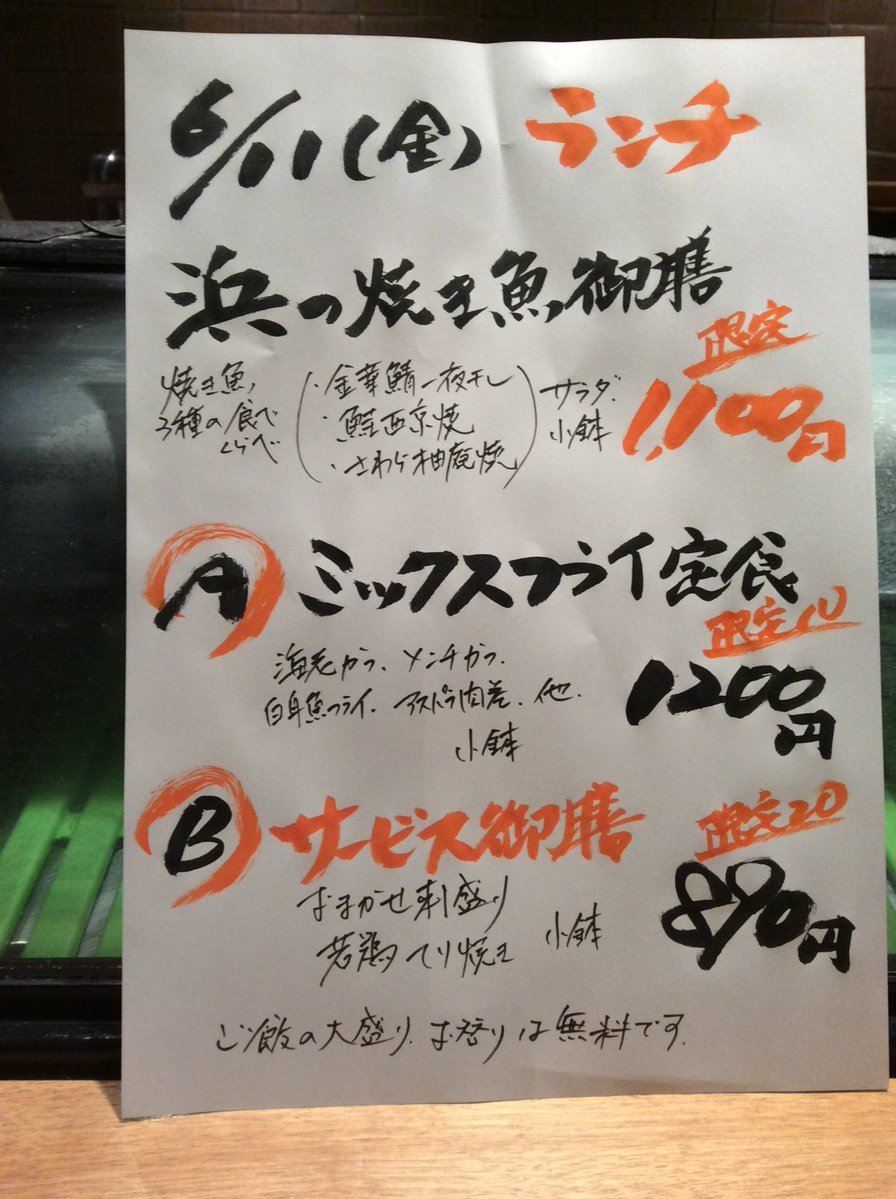 6/11(金) ランチ
浜の焼き魚御膳
限定
1,100円
焼き魚
3種の食べ
くらべ
・金華鯖一夜干し
・鮭西京焼
・さわら柚庵焼
サラダ.
小鉢
A ミックスフライ定食
限定10
1200円
海老カツ、メンチカツ、
白身魚フライ、アスパラ肉巻、他、
小鉢
B サービス御膳
限定20
890円
おまかせ刺盛り
若鶏てり焼き
小鉢
ご飯の大盛り、お替りは無料です.